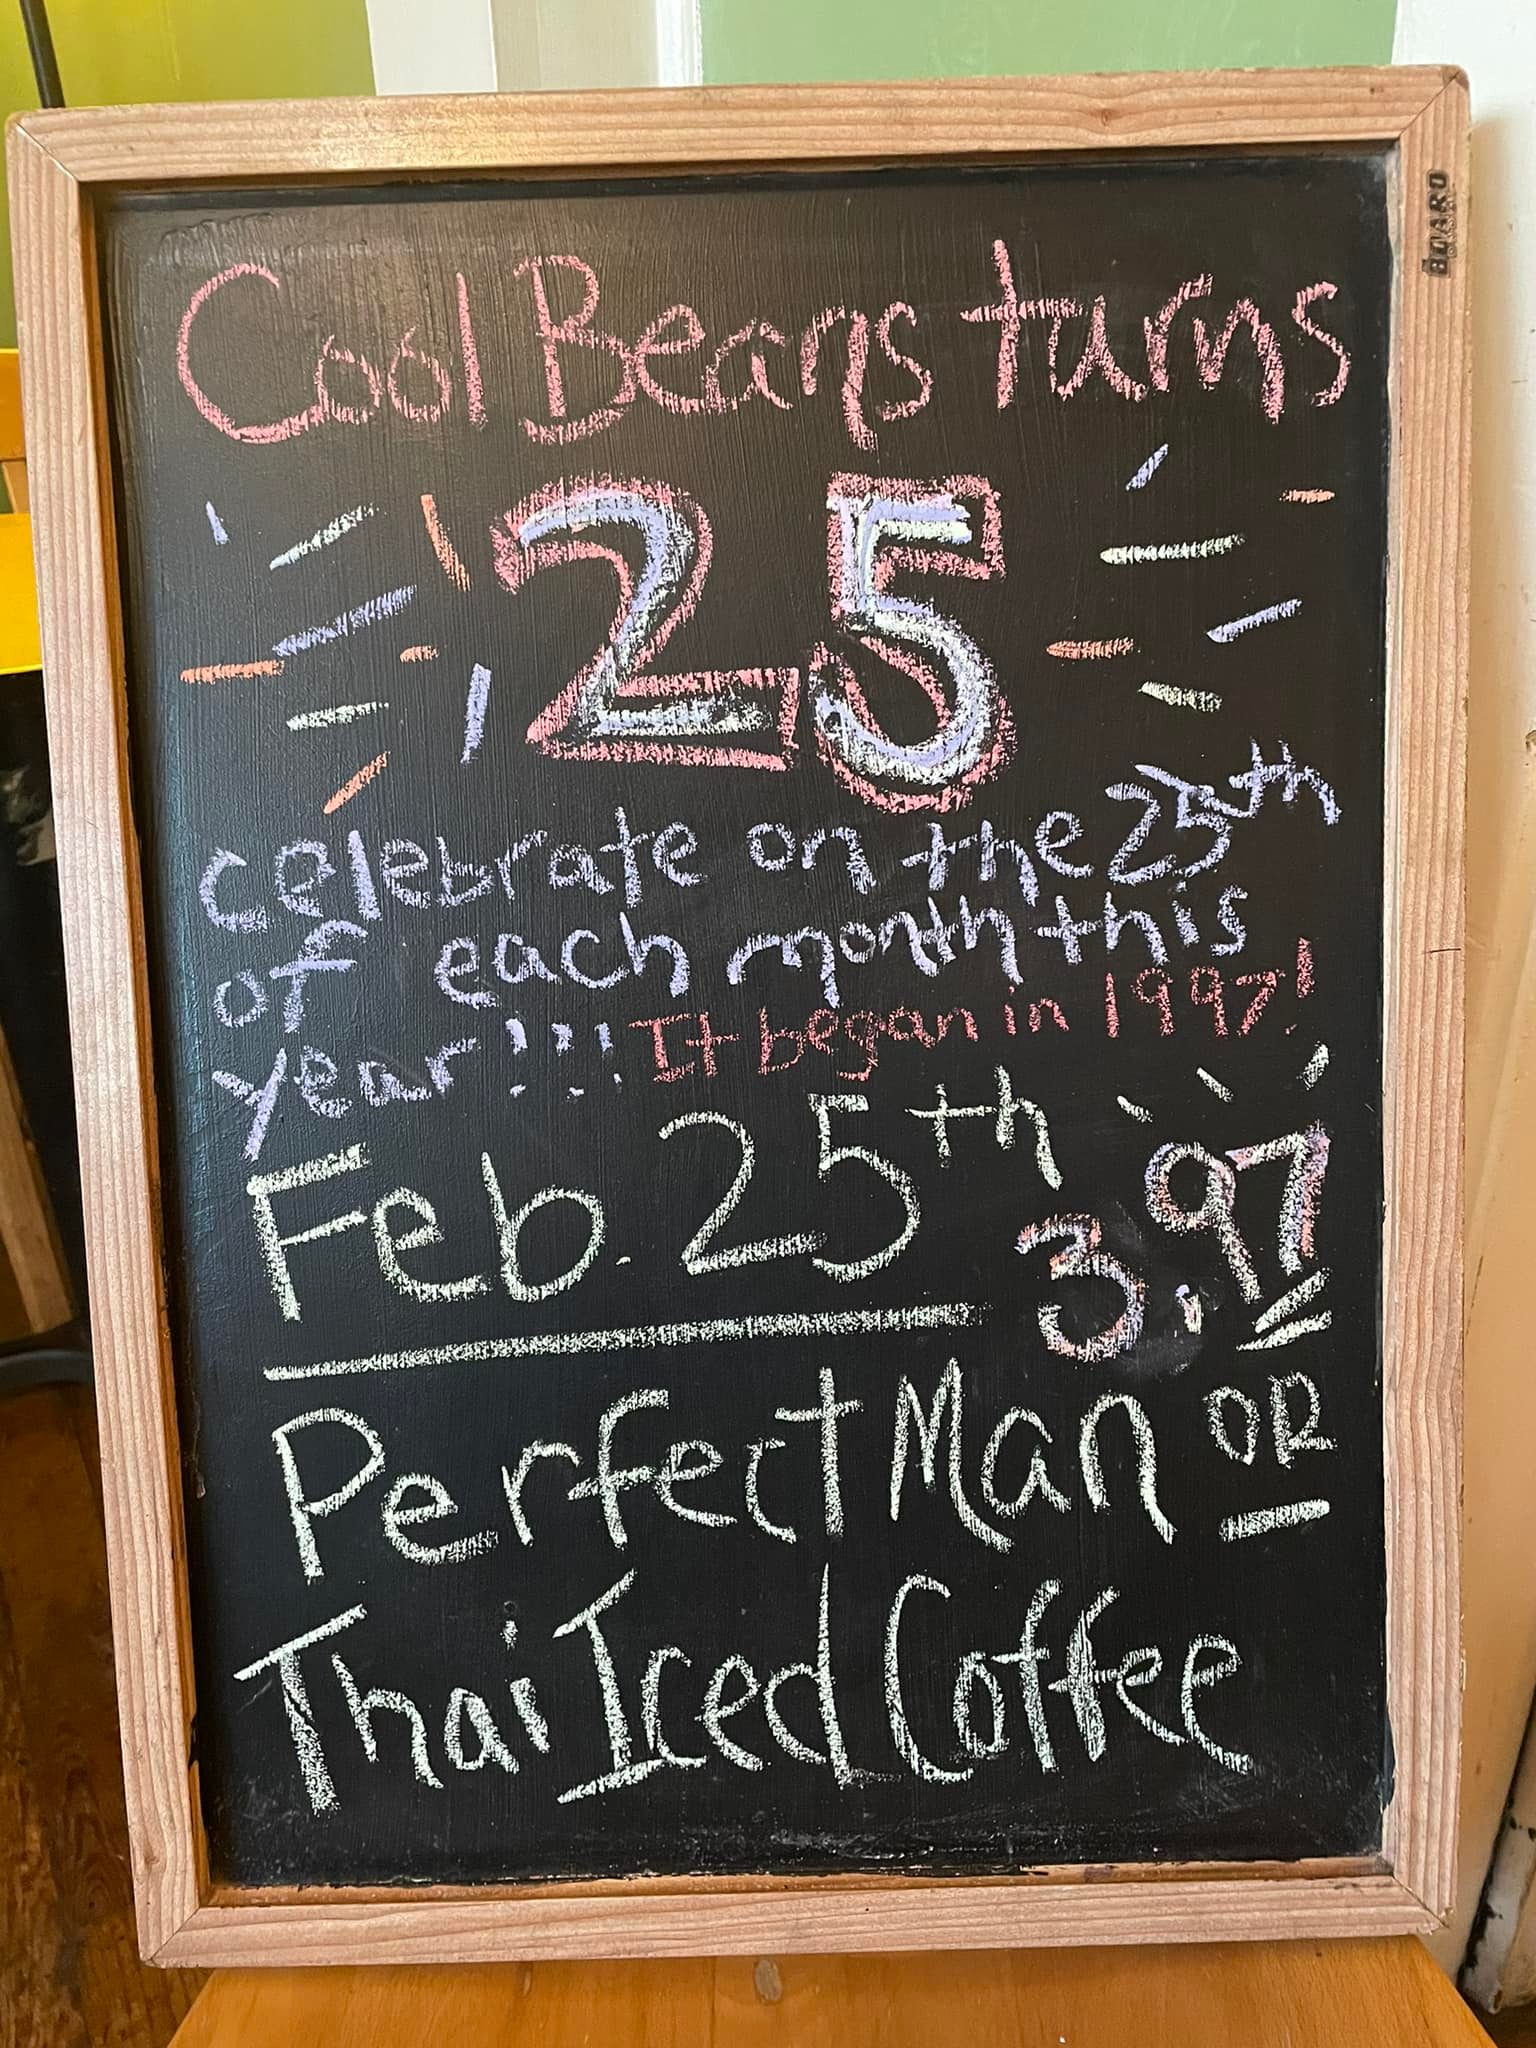 Cool Beans turns
25
celebrate on the 25th
of each month this
year!!! It began in 1997!
Feb. 25th 3.97
Perfect Man OR
Thai Iced Coffee
BOARD